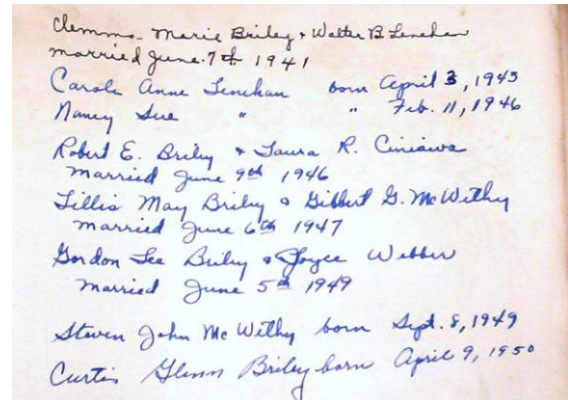 Clemma Marie Briley & Walter B Lenehan
married June 7th 1941
Carole Anne Lenehan born April 3, 1943
Nancy Sue " " Feb. 11, 1946
Robert E. Briley & Laura R. Ciniawa
married June 9th 1946
Lillis May Briley & Gilbert G. McWithy
married June 6th 1947
Gordon Lee Briley & Joyce Webber
married June 5th 1949
Steven John McWithy born Sept. 8, 1949
Curtis Glenn Briley born April 9, 1950